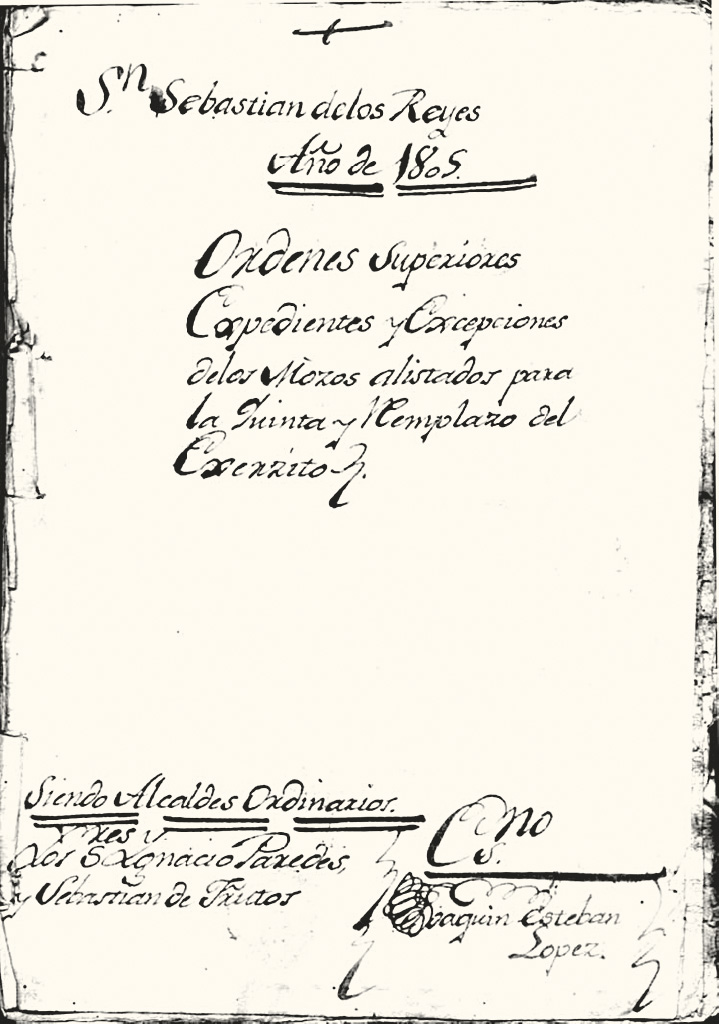 Sn Sebastian delos Reyes
Año de 1805.
Ordenes Superiores
Expedientes y Excepciones
delos Mozos alistados para
la Quinta y Remplazo del
Exerzito
Siendo Alcaldes Ordinarios.
Los Sres Ygnacio Paredes,
y Sebastian de Frutos
Esno
Joaquin Esteban
Lopez.